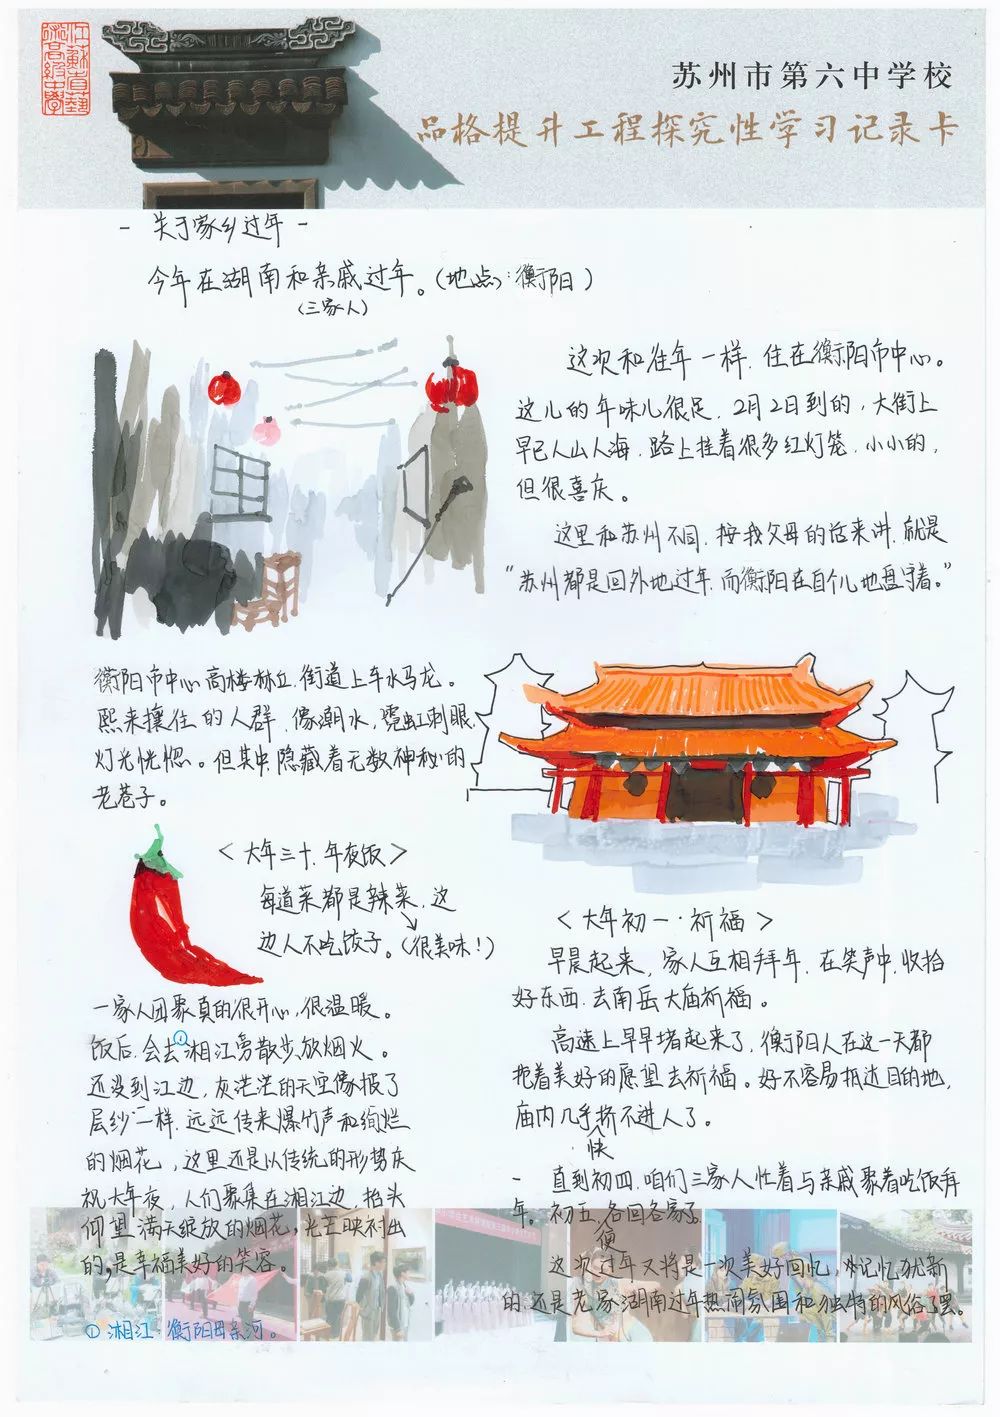 江苏省直艺
院高级中学
苏州市第六中学校
品格提升工程探究性学习记录卡
- 关于家乡过年 -
今年在湖南和亲戚过年。(地点:衡阳)
(三家人)
这次和往年一样,住在衡阳市中心。
这儿的年味儿很足,2月2日到的,大街上
早已人山人海,路上挂着很多红灯笼,小小的,
但很喜庆。
这里和苏州不同,按我父母的话来讲,就是
“苏州都是回外地过年,而衡阳在自个儿地盘守着。”
衡阳市中心高楼林立,街道上车水马龙。
熙来攘往的人群,像潮水,霓虹刺眼,
灯光恍惚。但其中,隐藏着无数神秘的
老巷子。
<大年三十·年夜饭>
每道菜都是辣菜,这
边人不吃饺子。(很美味!)
一家人团聚真的很开心,很温暖。
饭后,会去①湘江旁散步,放烟火。
还没到江边,灰茫茫的天空像披了
层纱一样,远远传来爆竹声和绚烂
的烟花,这里还是以传统的形势庆
祝大年夜,人们聚集在湘江边,抬头
仰望,满天绽放的烟花,光芒映衬出
的,是幸福美好的笑容。
①湘江:衡阳母亲河。
<大年初一·祈福>
早晨起来,家人互相拜年,在笑声中,收拾
好东西,去南岳大庙祈福。
高速上早早堵起来了,衡阳人在这一天都
抱着美好的愿望去祈福。好不容易抵达目的地,
庙内几乎挤不进人了。
快
- 直到初四,咱们三家人忙着与亲戚聚着吃饭拜
年。初五,各回各家了。
便
这次过年又将是一次美好回忆,记忆犹新
的,还是老家湖南过年热闹氛围和独特的风俗了罢。